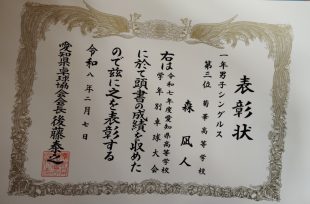 表彰状
一年男子シングルス
第三位 菊華高等学校
森 凪人
右は令和七年度愛知県高等学校
学年別卓球大会
に於て頭書の成績を収めた
ので茲に之を表彰する
令和八年二月七日
愛知県卓球協会会長 後藤泰之